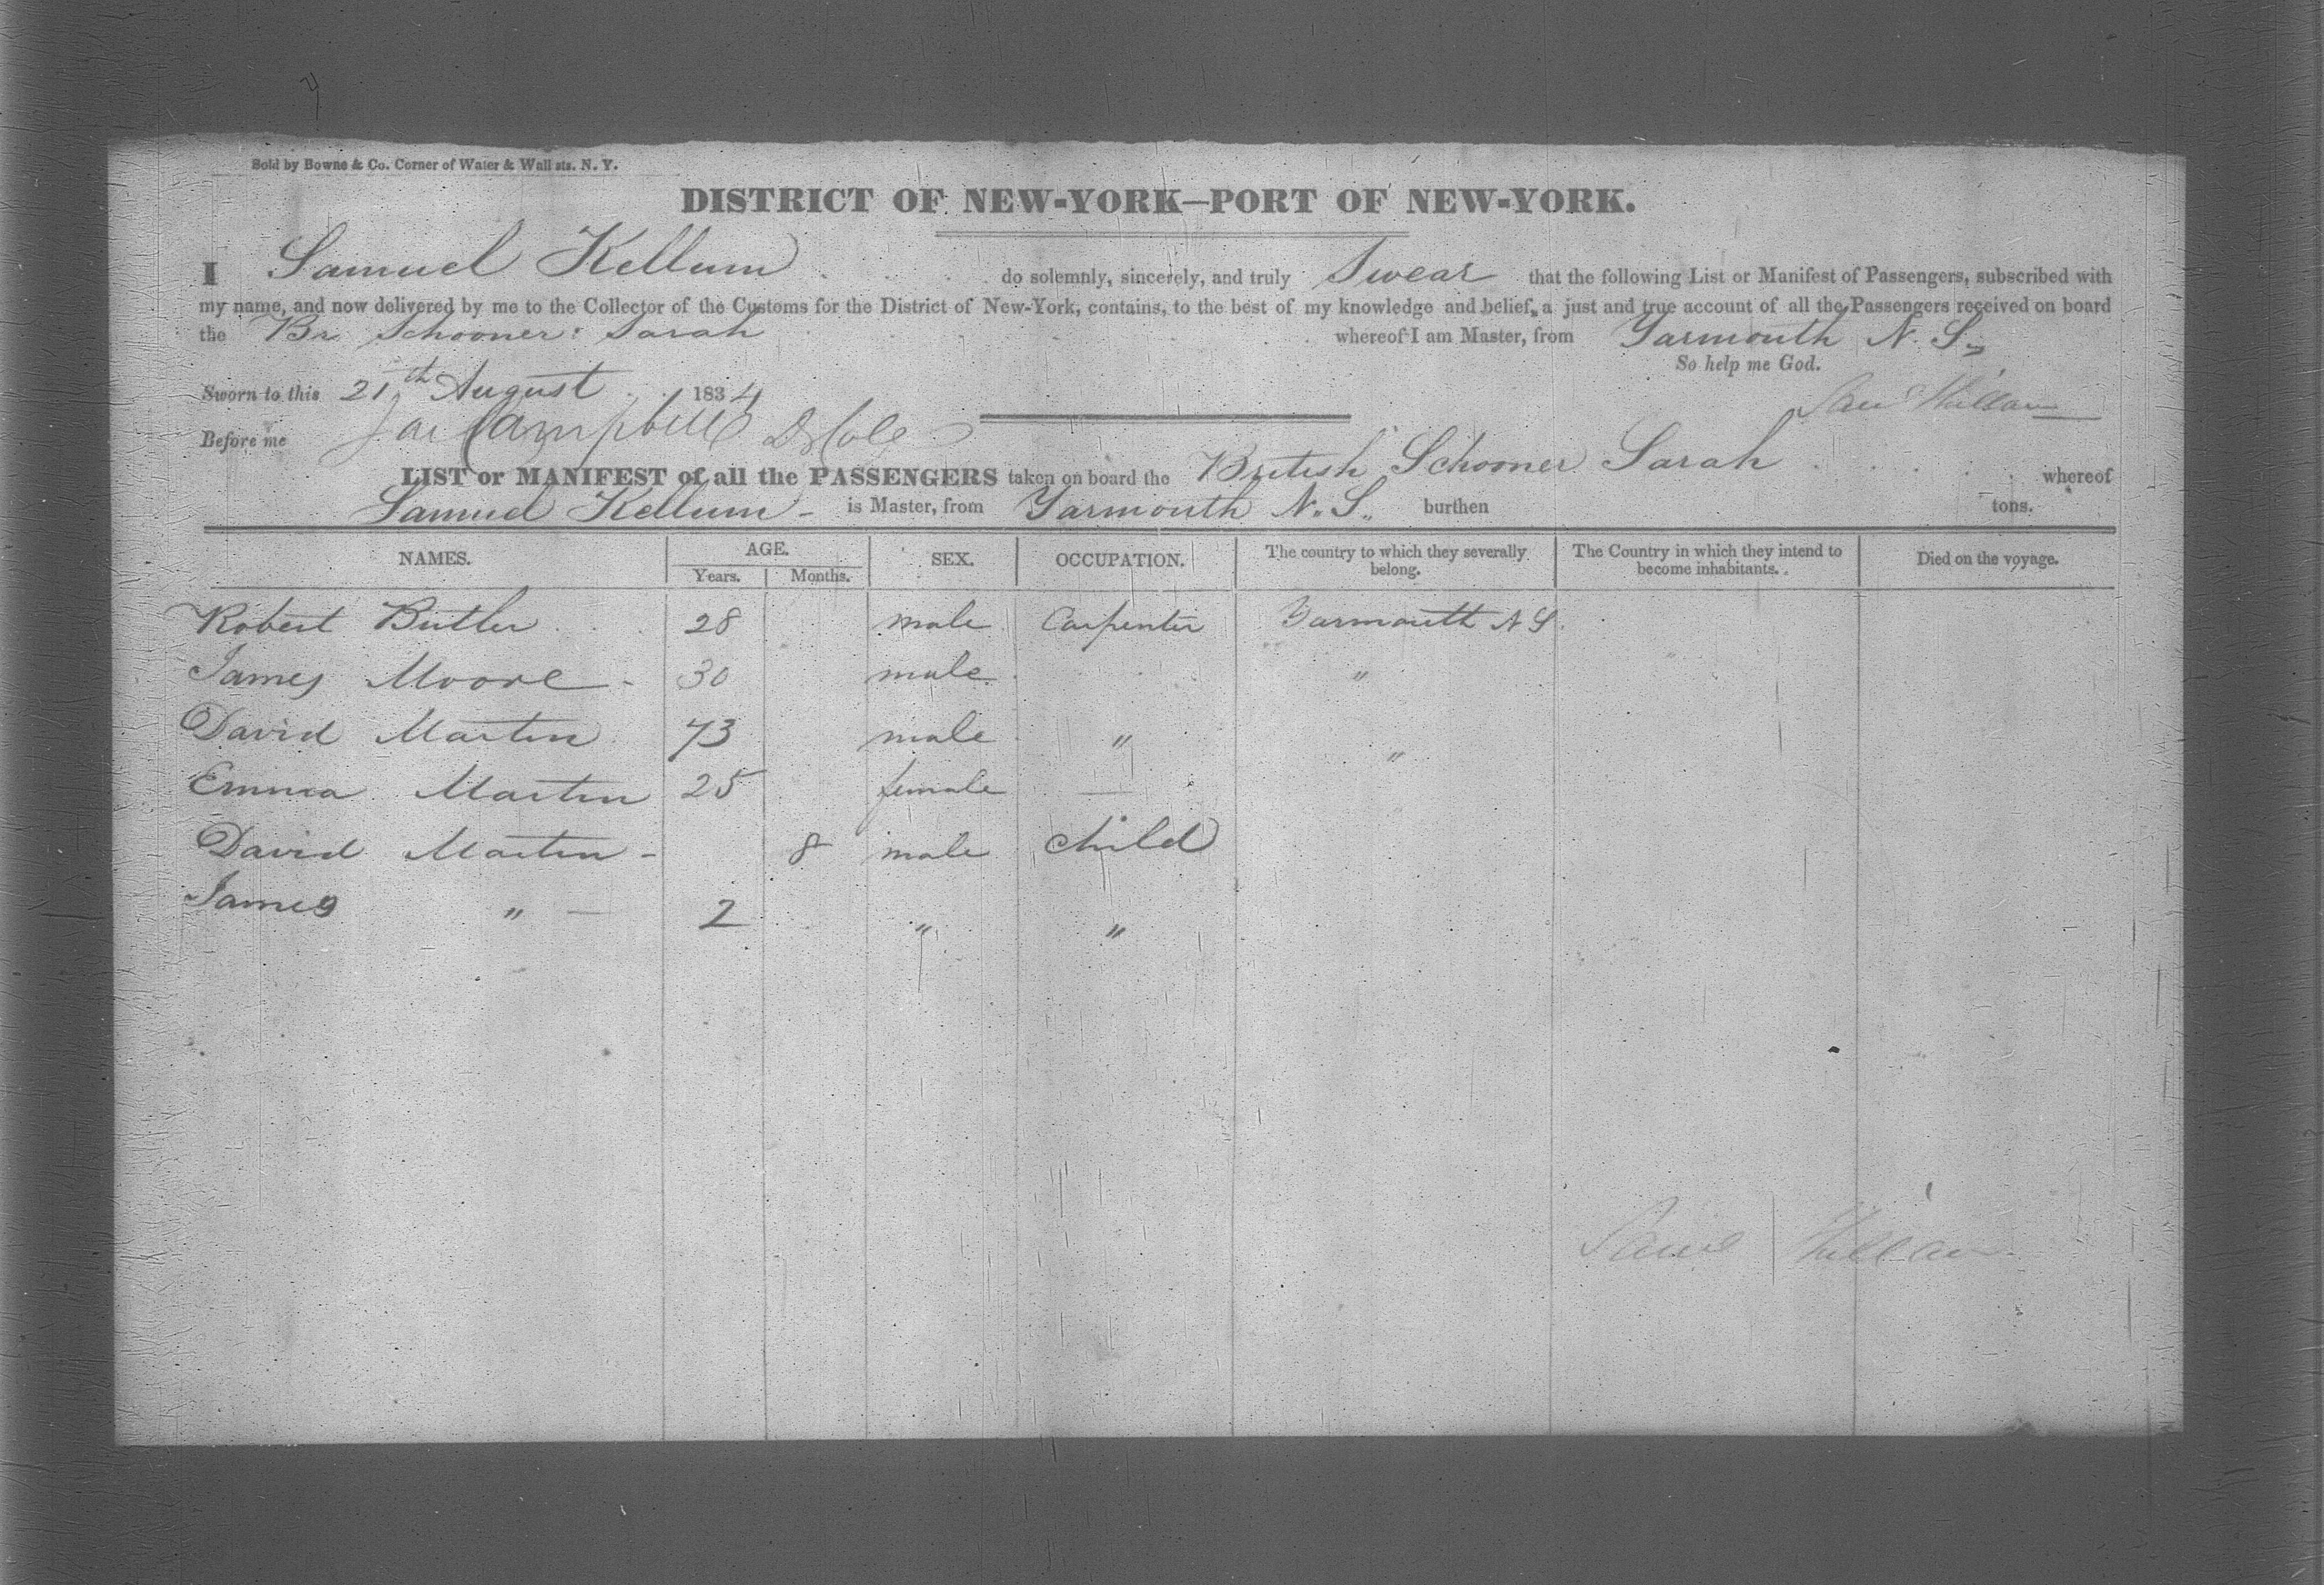 Sold by Bowne & Co. Corner of Water & Wall sts. N. Y.
DISTRICT OF NEW-YORK—PORT OF NEW-YORK.
I Samuel Kellum do solemnly, sincerely, and truly Swear that the following List or Manifest of Passengers, subscribed with
my name, and now delivered by me to the Collector of the Customs for the District of New-York, contains, to the best of my knowledge and belief, a just and true account of all the Passengers received on board
the Br Schooner Sarah whereof I am Master, from Yarmouth N. S.
So help me God.
Sworn to this 21th August 1834
Before me Jas Campbell D Col
LIST or MANIFEST of all the PASSENGERS taken on board the British Schooner Sarah whereof
Samuel Kellum - is Master, from Yarmouth N. S. burthen tons.
NAMES. AGE. SEX. OCCUPATION. The country to which they severally belong. The Country in which they intend to become inhabitants. Died on the voyage.
Years. Months.
Robert Butler 28 male Carpenter Yarmouth N S.
James Moore - 30 male "
David Martin 73 male " "
Emma Martin 25 female —
David Martin - 8 male child
James " — 2 " "
Saml Killam